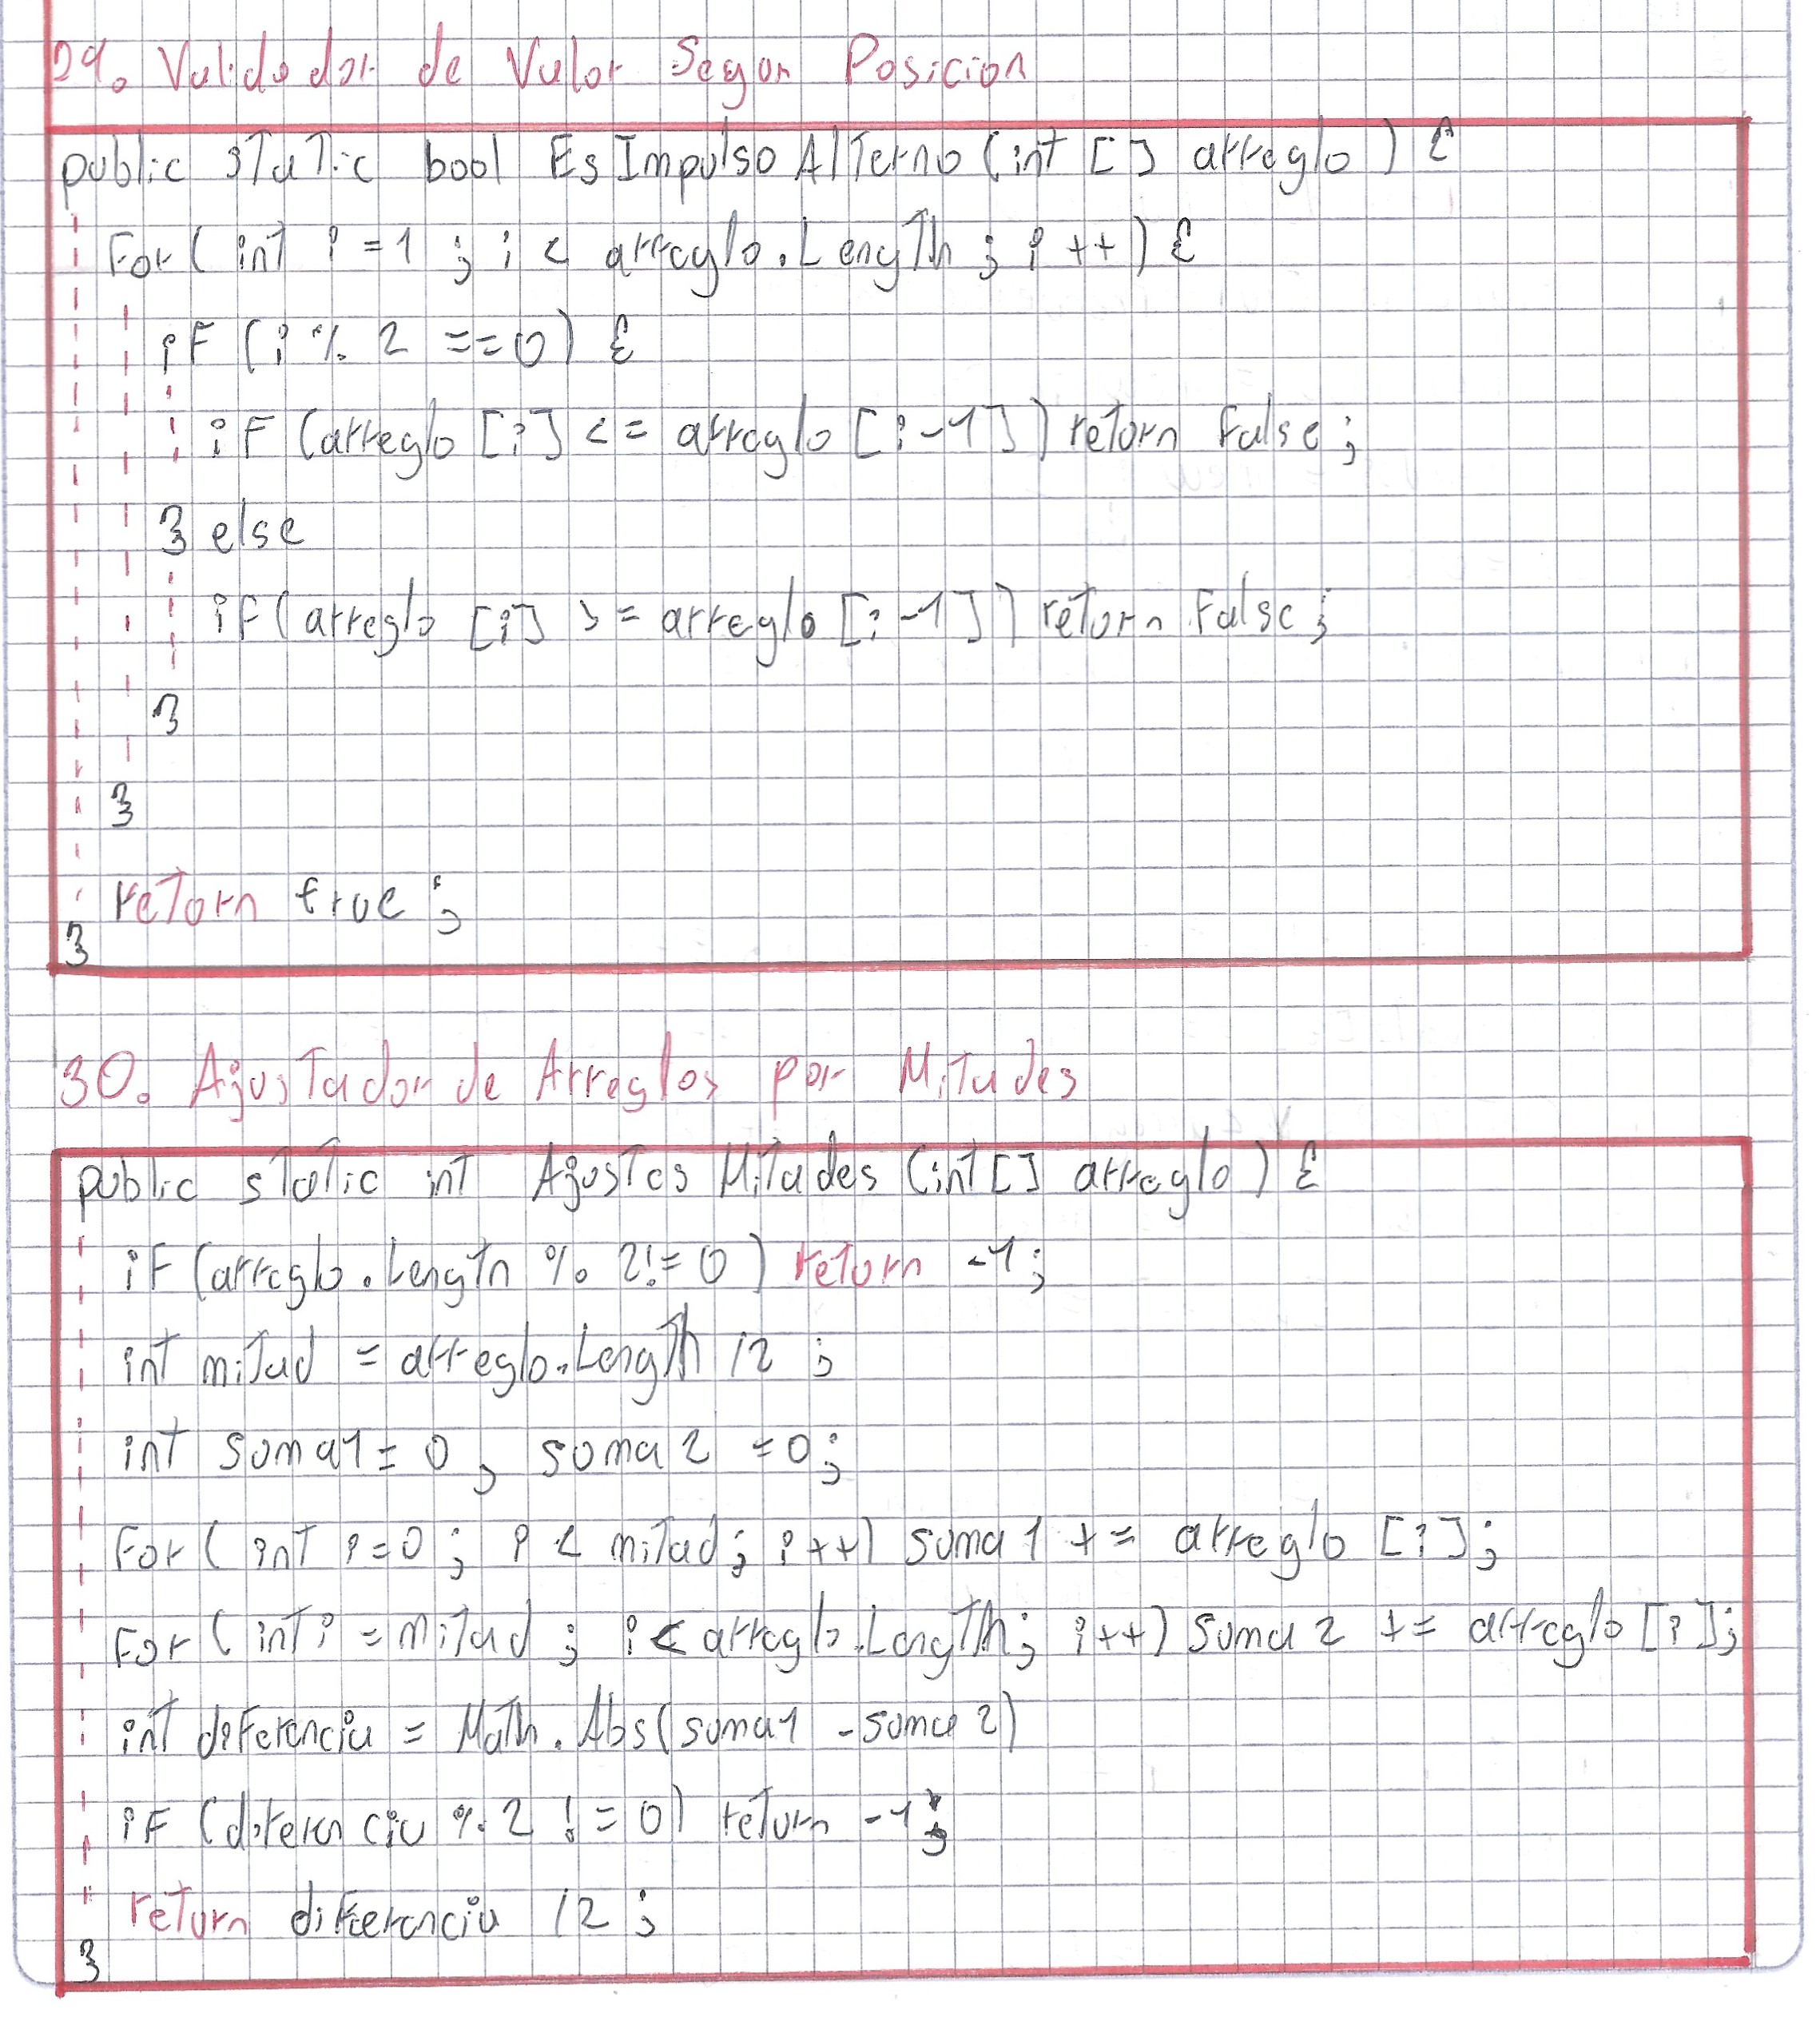 29. Validador de Valor Segun Posicion
public static bool EsImpulsoAlterno (int [] arreglo) {
For (int i = 1 ; i < arreglo.Length ; i ++) {
iF (i % 2 == 0) {
iF (arreglo [i] <= arreglo [i-1]) return False ;
} else
iF (arreglo [i] >= arreglo [i-1]) return False ;
}
}
return true ;
}
30. Ajustador de Arreglos por Mitades
public static int Ajustes Mitades (int [] arreglo) {
iF (arreglo.Length % 2 != 0) return -1;
int mitad = arreglo.Length /2 ;
int suma1 = 0 , suma2 = 0;
For (int i=0 ; i < mitad ; i++) suma1 += arreglo [i];
For (int i = mitad ; i < arreglo.Length; i++) suma2 += arreglo [i];
int diferencia = Math.Abs(suma1 - suma2)
iF (diferencia % 2 != 0) return -1;
return diferencia /2 ;
}